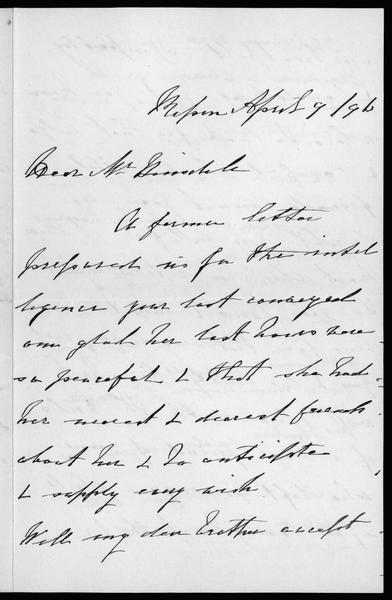 April 9/96
Dear Mr
A former letter
prepared us for the intel
ligence your last conveyed
am glad her last hours were
so peaceful & that she had
her nearest & dearest friends
about her & to anticipate
& supply every wish
Well my dear brother accept